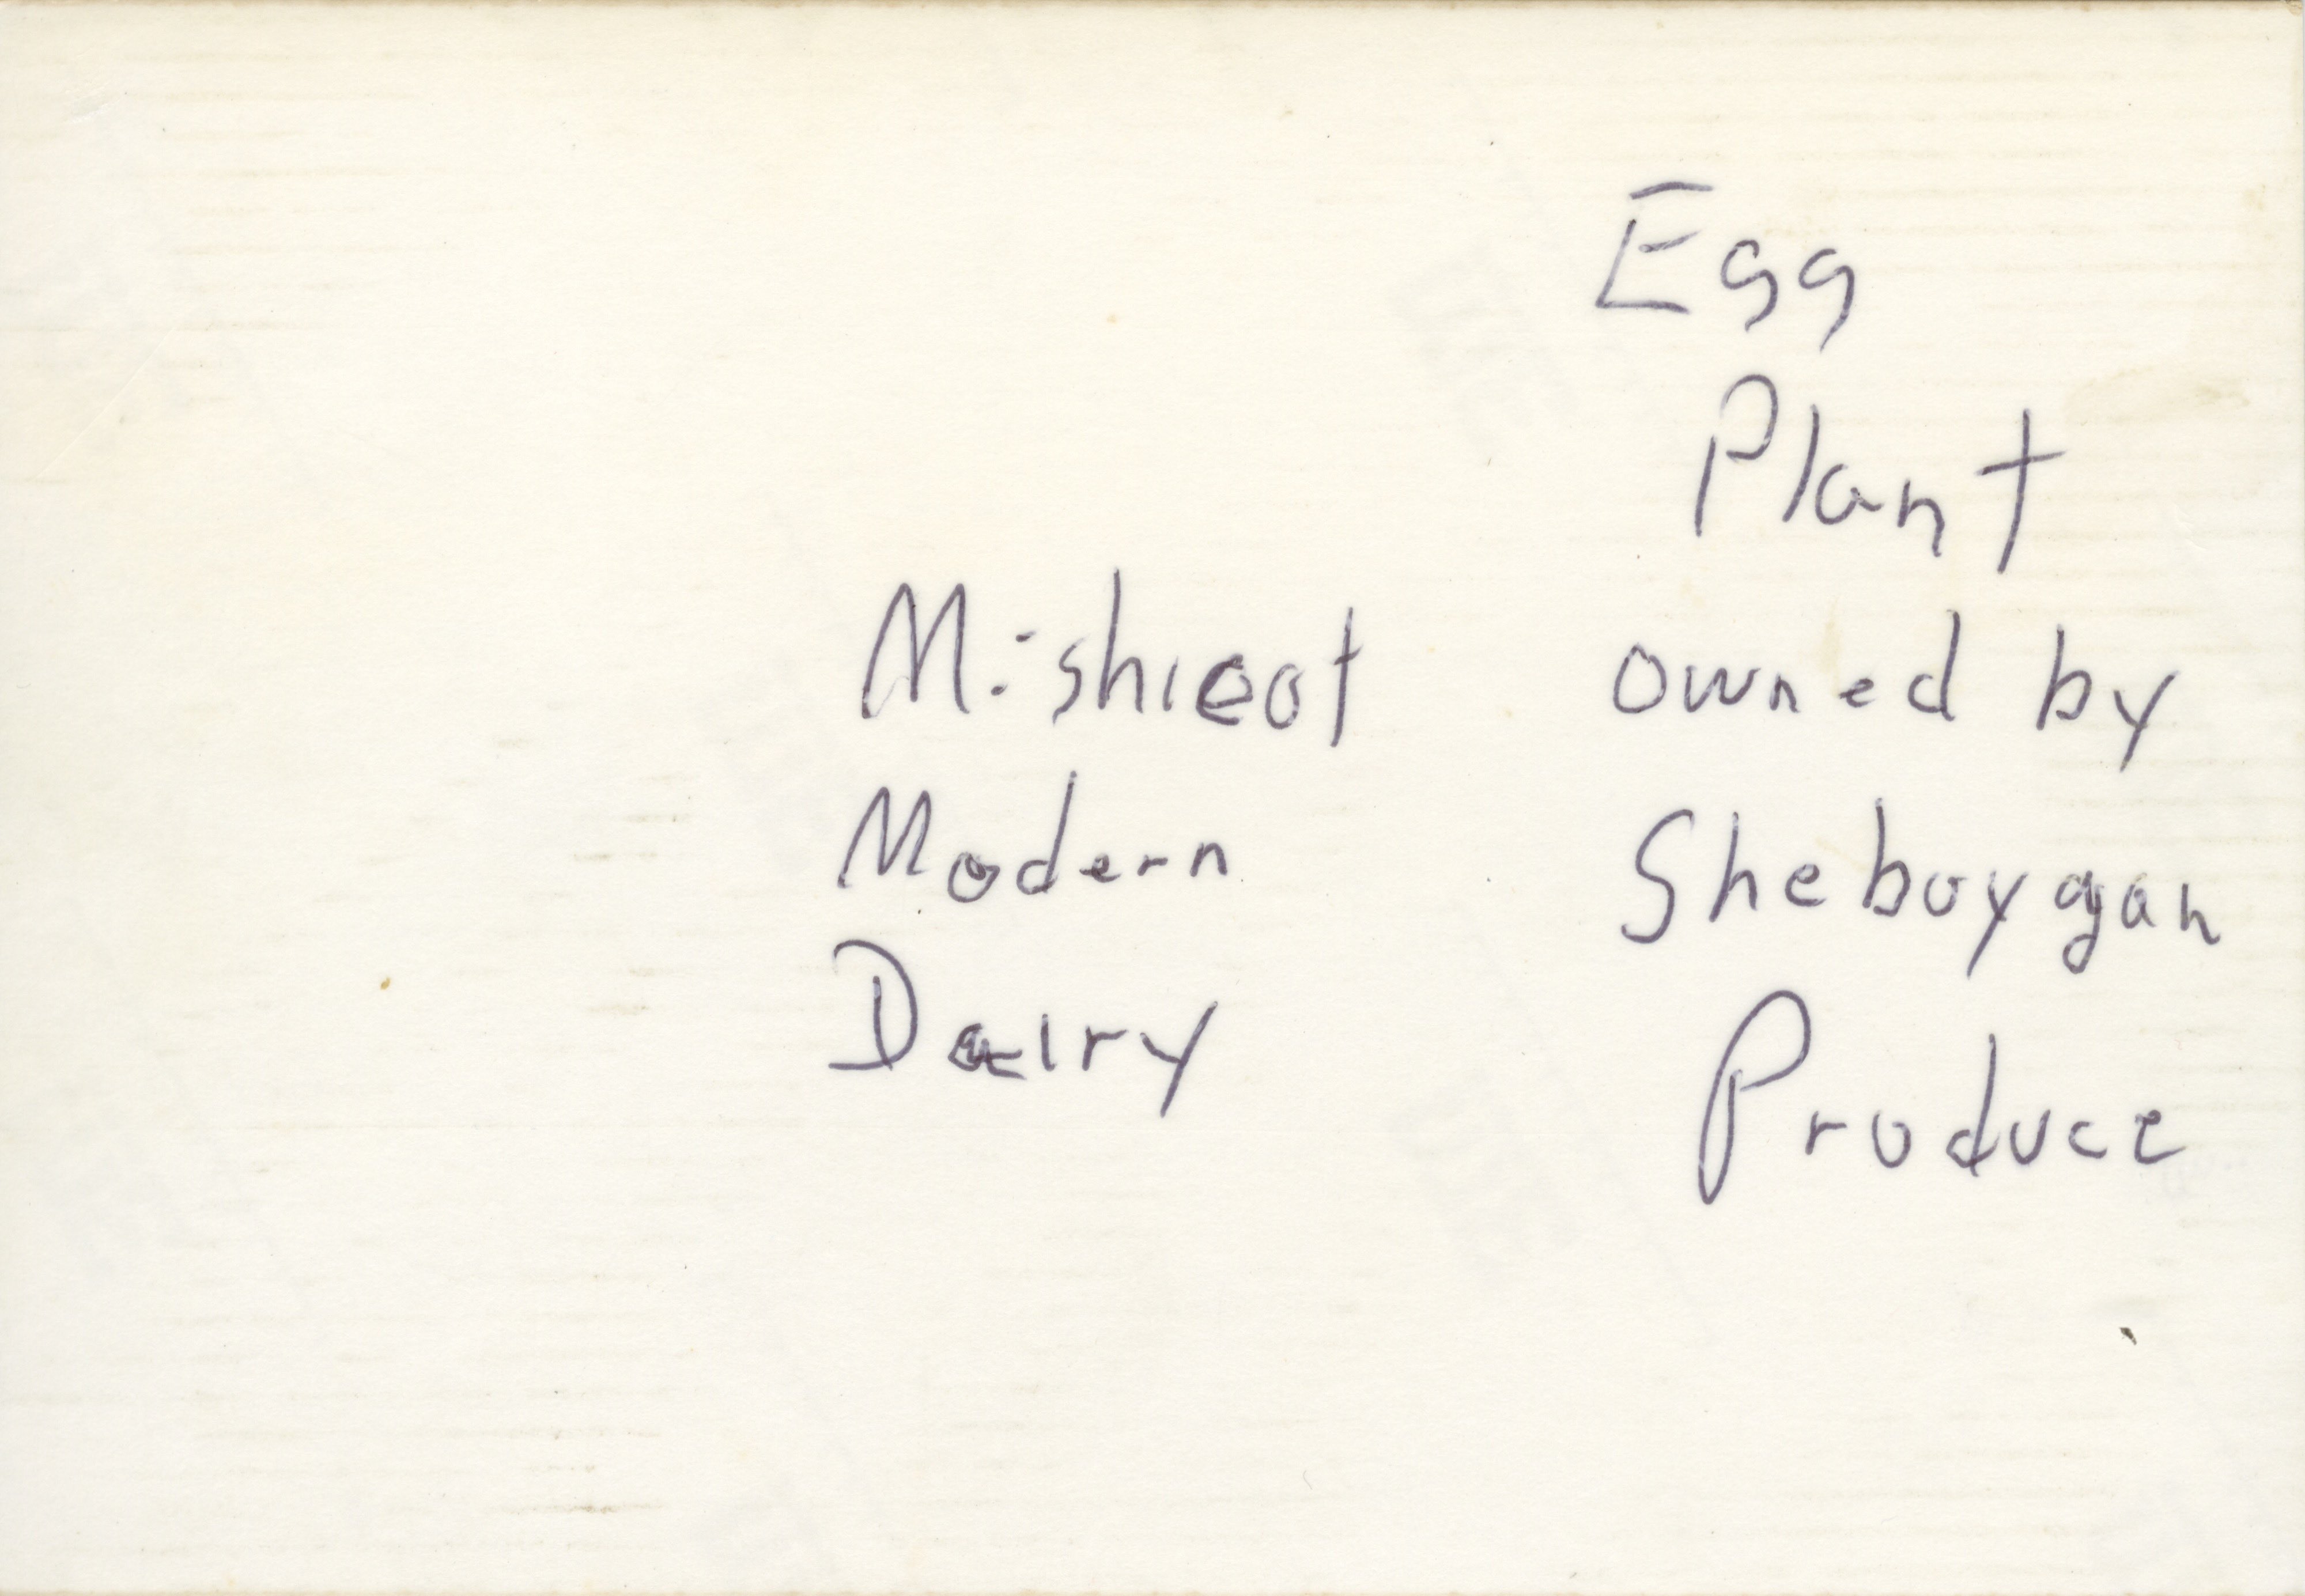 Mishicot
Modern
Dairy
Egg
Plant
owned by
Sheboygan
Produce